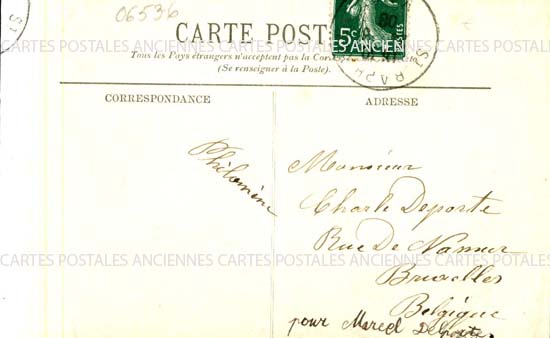 06536
CARTE POST
5c
ST RAPH
Tous les Pays étrangers n'acceptent pas la
(Se renseigner à la Poste).
CORRESPONDANCE
ADRESSE
CARTES POSTALES ANCIENNES CARTES POSTALES ANCIENNES CARTES POSTALES ANCIENNES
Philomène
Monsieur
Charle Deporte
Rue De Namur
Bruxelles
Belgique
pour Marcel
CARTES POSTALES ANCIENNES CARTES POSTALES ANCIENNES CARTES POSTALES ANCIENNES